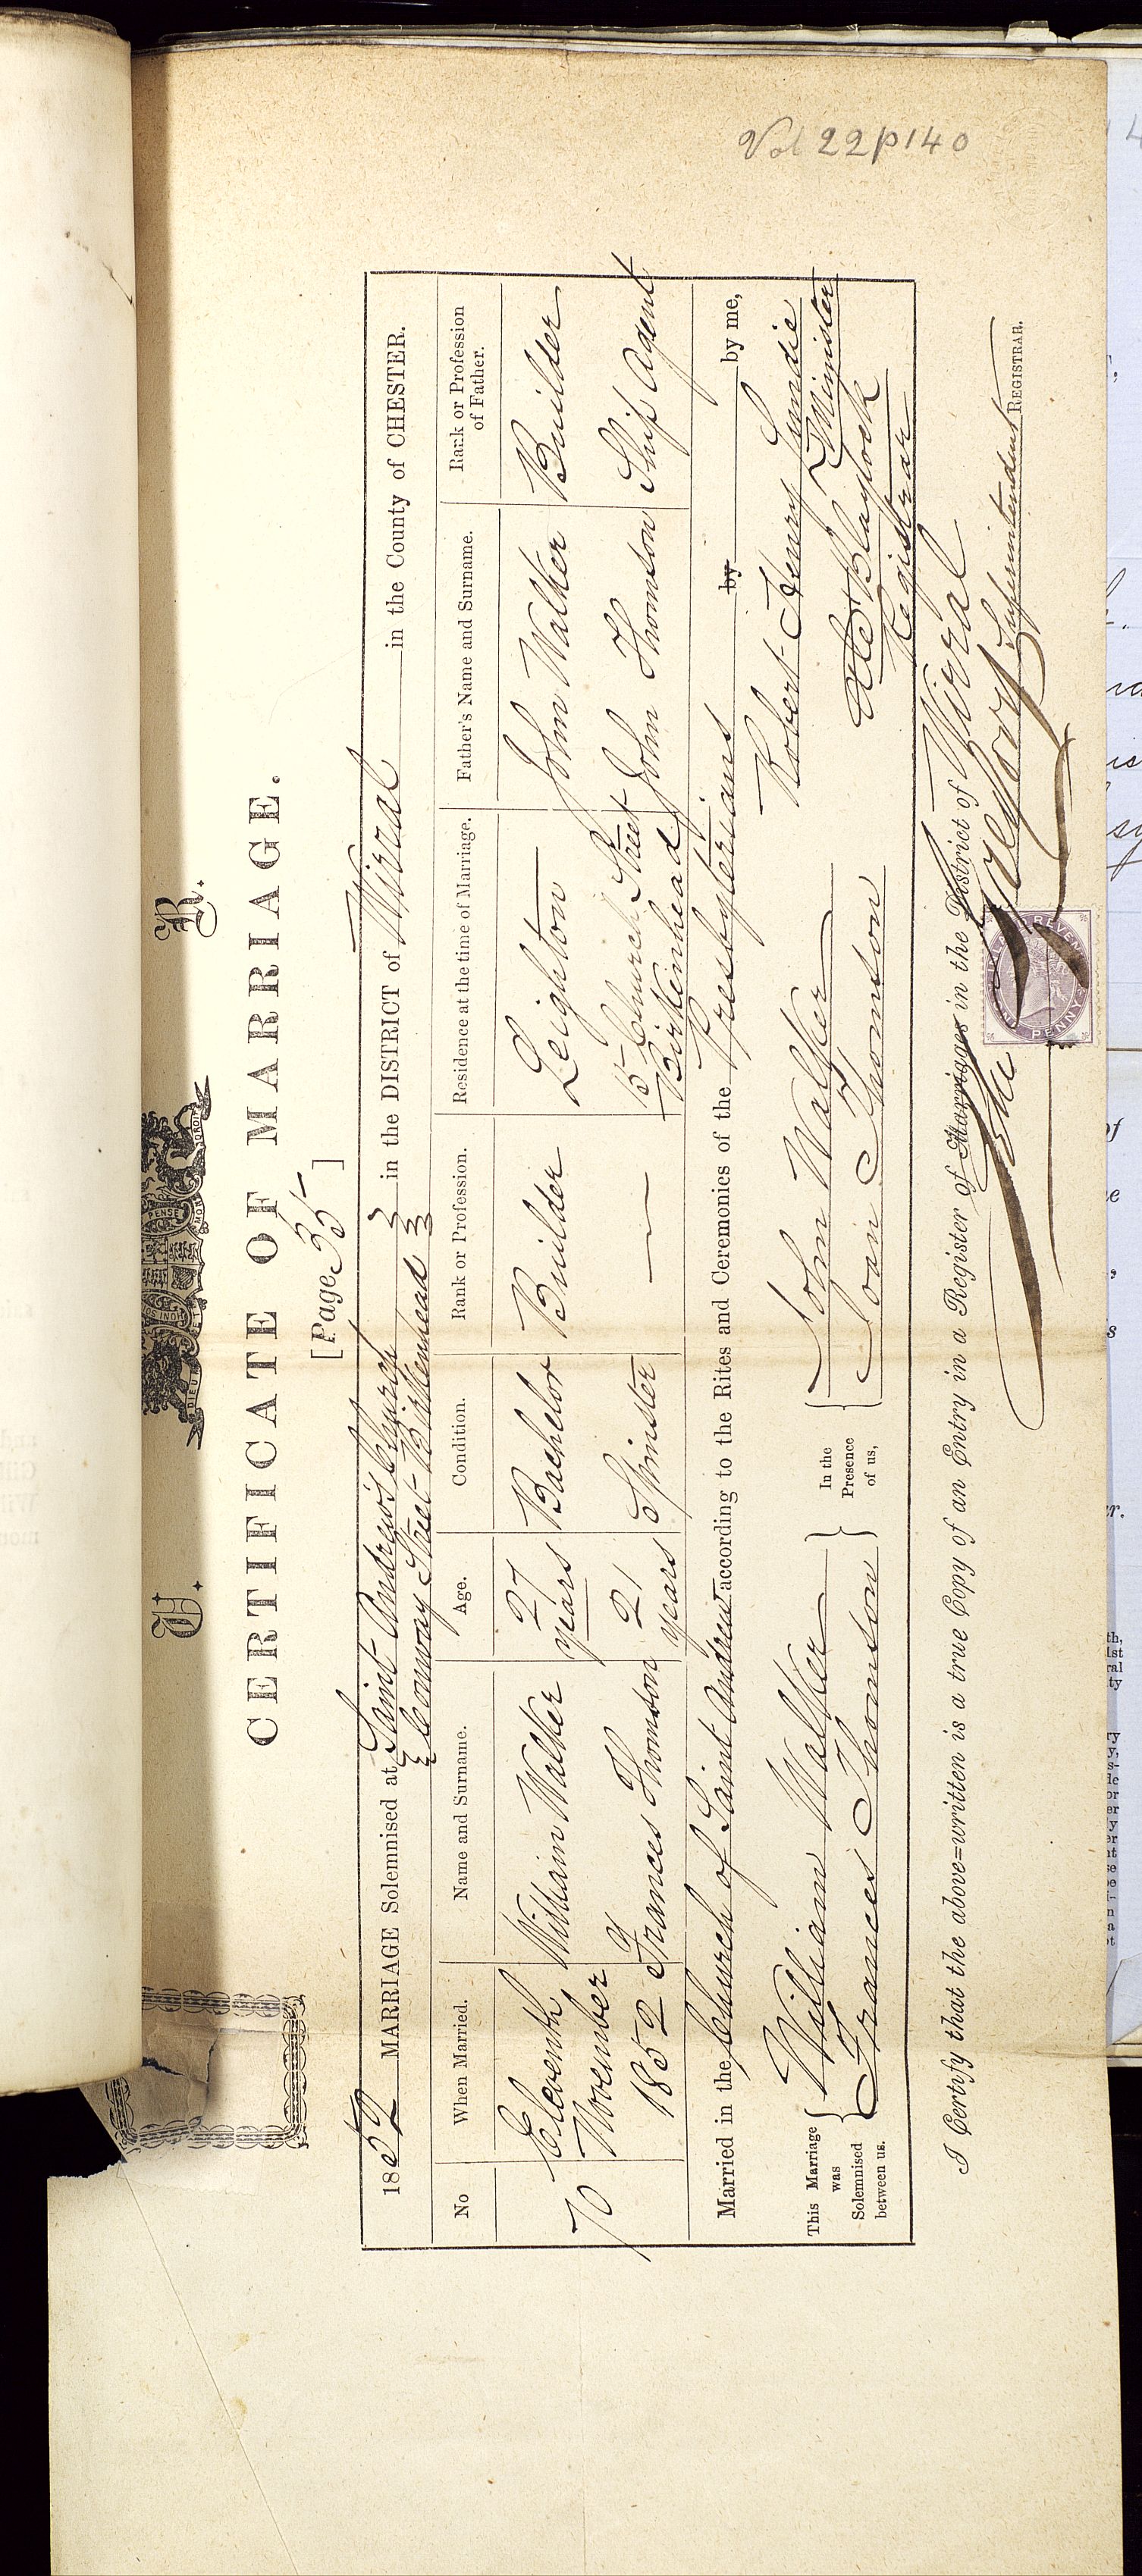 Vol 22 p 140
V. R.
DIEU ET MON DROIT
CERTIFICATE OF MARRIAGE.
[Page 35]
1852 MARRIAGE Solemnised at Saint Andrew's Church in the DISTRICT of Wirral in the County of CHESTER.
Conway Street Birkenhead
No When Married. Name and Surname. Age. Condition. Rank or Profession. Residence at the time of Marriage. Father's Name and Surname. Rank or Profession of Father.
70 Eleventh November 1852 William Walker 27 years Bachelor Builder Leighton John Walker Builder
Frances Thomson 21 years Spinster — 15 Church Street Birkenhead John Thomson Ship Agent
Married in the Church of Saint Andrew according to the Rites and Ceremonies of the Presbyterians by by me,
This Marriage was Solemnised between us, William Walker In the Presence of us, John Walker Robert Henry Lundie Minister
Frances Thomson Joan Thomson Blaylock Registrar
I Certify that the above=written is a true Copy of an Entry in a Register of Marriages in the District of Wirral
Gregory Superintendent REGISTRAR.
PENNY